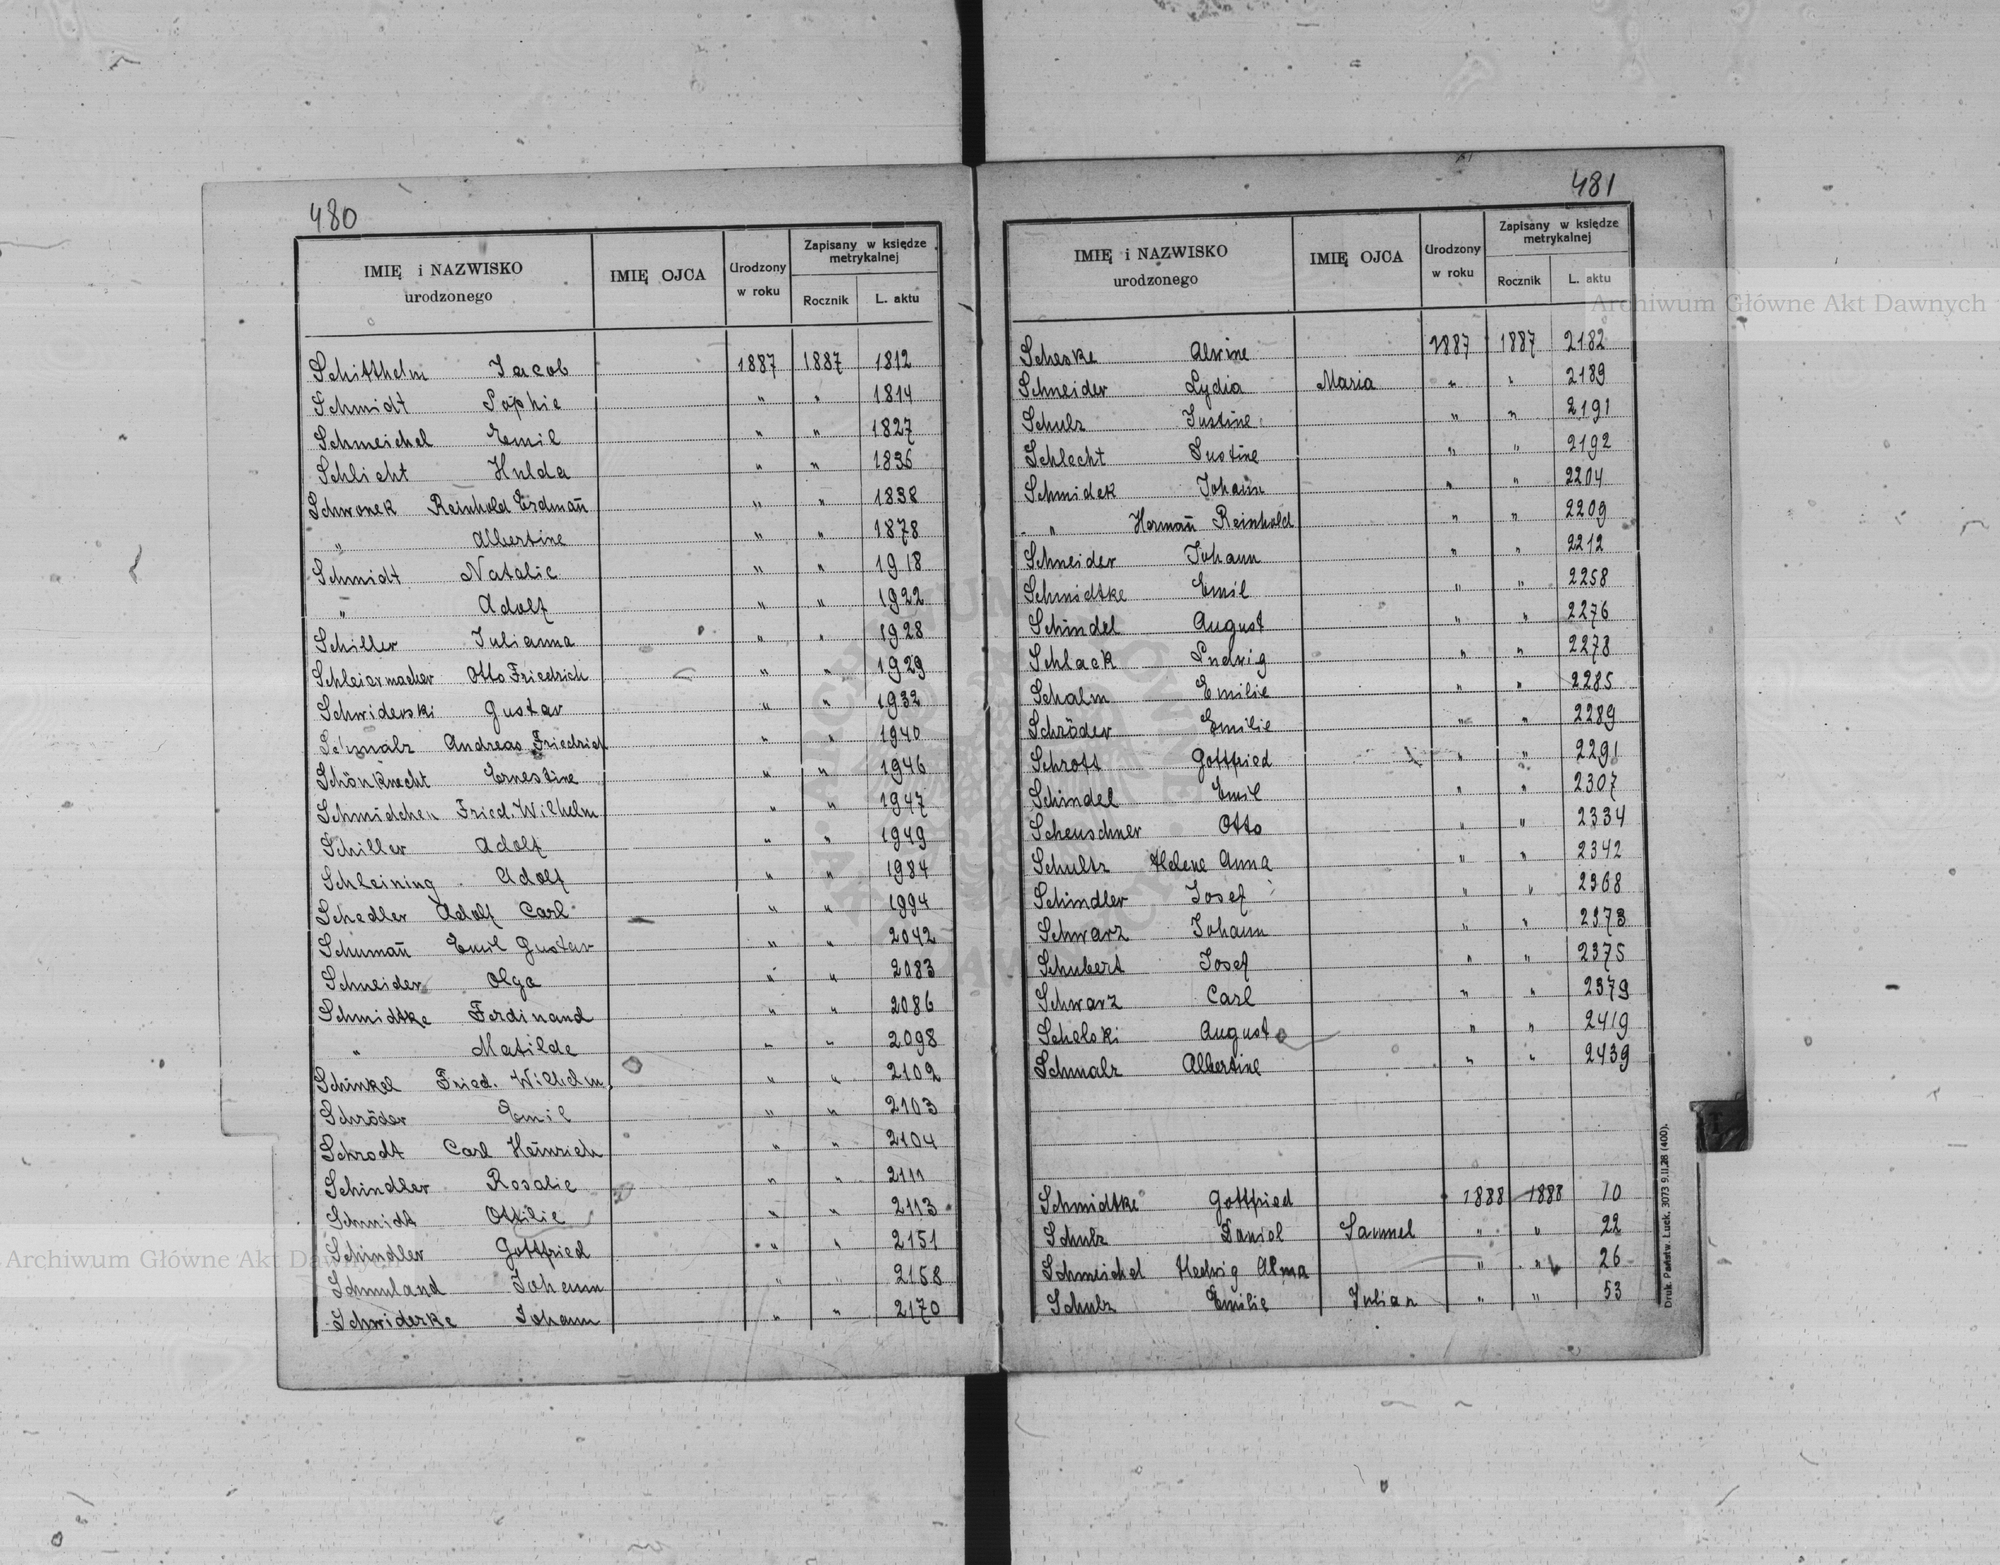 480
IMIĘ i NAZWISKO urodzonego IMIĘ OJCA Urodzony w roku Zapisany w księdze metrykalnej Rocznik L. aktu
Schitthelm Jacob 1887 1887 1812
Schmidt Sophie " " 1814
Schmeichel Emil " " 1827
Schlicht Hulda " " 1836
Schwonek Reinhold Erdman̄ " " 1838
" Albertine " " 1878
Schmidt Natalie " " 1918
" Adolf " " 1922
Schiller Julianna " " 1928
Schleiermacher Otto Friedrich " " 1929
Schwiderski Gustav " " 1932
Schmalz Andreas Friedrich " " 1940
Schönknecht Ernestine " " 1946
Schmidchen Fried. Wilhelm " " 1947
Schiller Adolf " " 1949
Schleining Adolf " " 1984
Schedler Adolf Carl " " 1994
Schuman̄ Emil Gustav " " 2042
Schneider Olga " " 2083
Schmidtke Ferdinand " " 2086
" Matilde " " 2098
Schinkel Fried. Wilhelm " " 2102
Schröder Emil " " 2103
Schrodt Carl Heinrich " " 2104
Schindler Rosalie " " 2111
Schmidt Ottilie " " 2113
Schindler Gottfried " " 2151
Schmuland Johann " " 2158
Schwiderke Johann " " 2170
481
IMIĘ i NAZWISKO urodzonego IMIĘ OJCA Urodzony w roku Zapisany w księdze metrykalnej Rocznik L. aktu
Scheske Alwine 1887 1887 2182
Schneider Lydia Maria " " 2189
Schulz Justine " " 2191
Schlecht Justine " " 2192
Schmidek Johann " " 2204
" Herman̄ Reinhold " " 2209
Schneider Johann " " 2212
Schmidtke Emil " " 2258
Schindel August " " 2276
Schlack Ludwig " " 2278
Schalm Emilie " " 2285
Schröder Emilie " " 2289
Schrott Gottfried " " 2291
Schindel Emil " " 2307
Scheuschner Otto " " 2334
Schultz Helene Anna " " 2342
Schindler Josef " " 2368
Schwarz Johann " " 2373
Schubert Josef " " 2375
Schwarz Carl " " 2379
Schelski August " " 2419
Schmalz Albertine " " 2439
Schmidtke Gottfried 1888 1888 10
Schulz Daniel Samuel " " 22
Schmeichel Hedwig Alma " " 26
Schulz Emilie Julian " " 53
Druk. Państw. Łuck. 3073 9.II.28 (400).
Archiwum Główne Akt Dawnych
Archiwum Główne Akt Dawnych